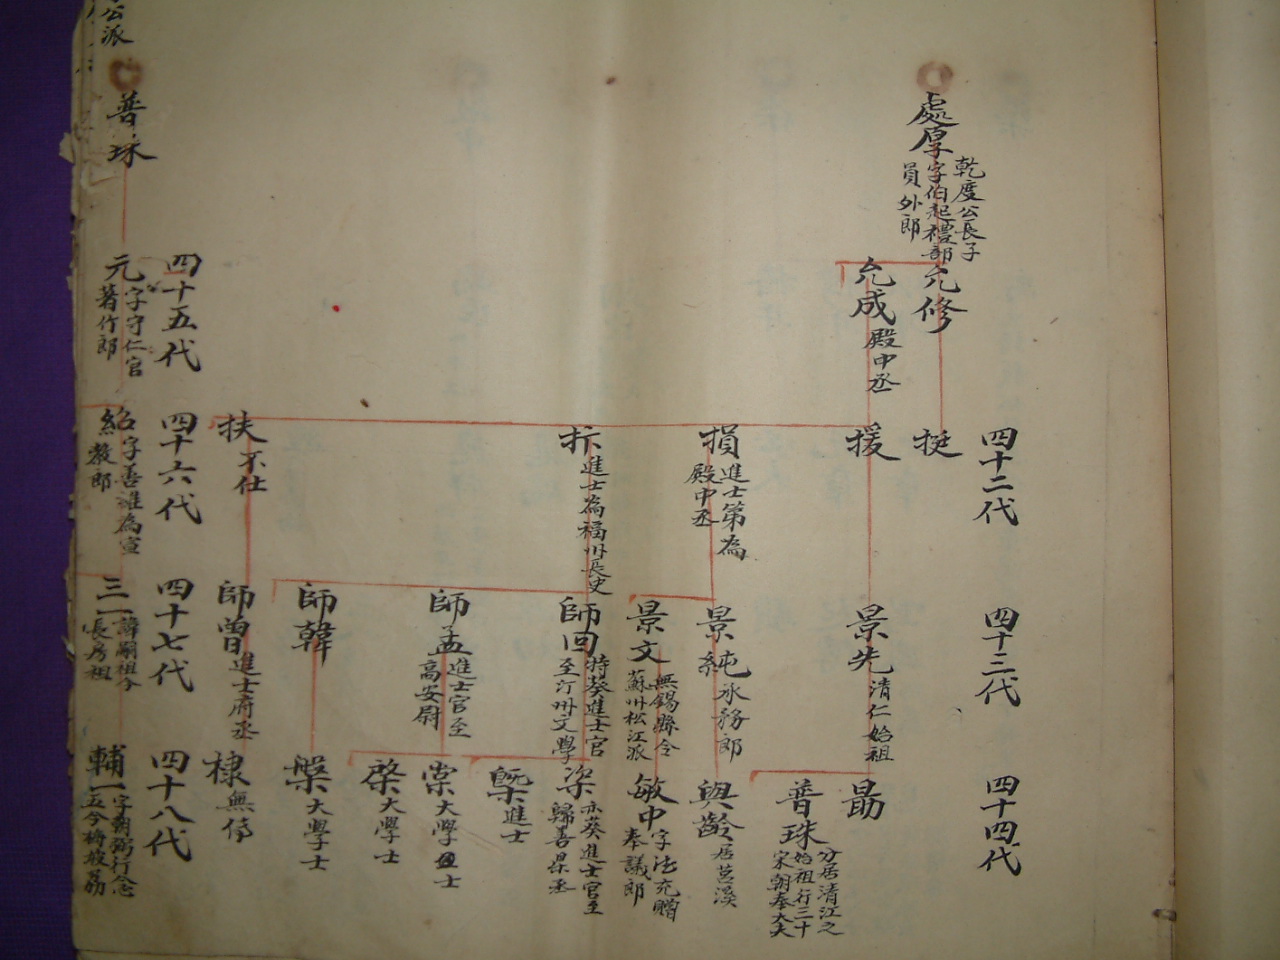 處厚
乾度公長子
字伯起禮部
員外郎
允修
允成
殿中丞
四十二代
挺
援
損
進士第為
殿中丞
折
進士為福州長史
扶
不仕
四十三代
景先
清仁始祖
景純
承務郎
景文
無錫縣令
蘇州松江派
師回
特葵進士官
至汀州文學
師孟
進士官至
高安尉
師韓
師曾
進士府丞
四十四代
勗
普珠
分居清江之
始祖行三十
宋朝奉大夫
與齡
居莒溪
敏中
字法充贈
奉議郎
亦葵進士官至
歸善县丞
進士
棠
大學士
棨
大學士
槃
大學士
棣
無傳
公派
普珠
四十五代
元
字守仁官
著作郎
四十六代
紹
字善淮為宣
教郎
四十七代
三一
諱嗣祖今
長房祖
四十八代
輔一
字朝弼行念
五今梅坡